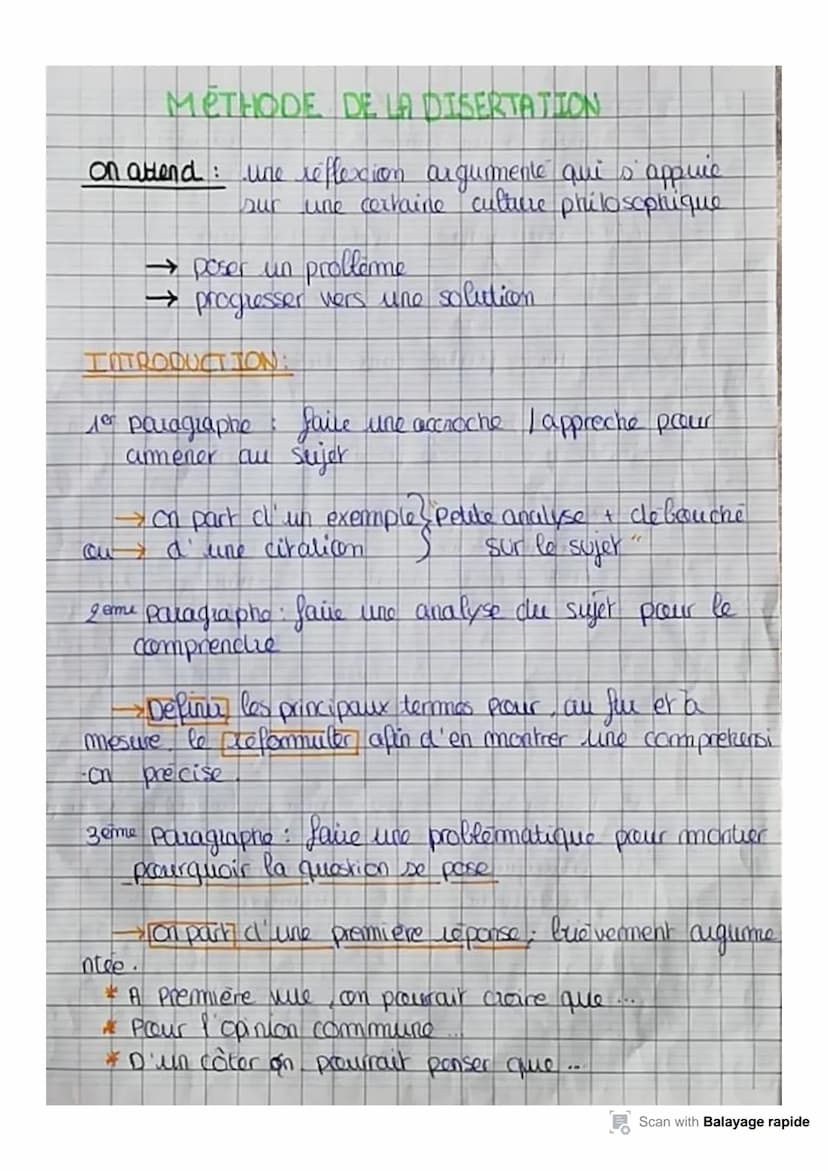 MÉTHODE DE LA DISERTATION
On attend : une réflexion argumenté qui s'appuie
sur une certaine culture philosophique
→ poser un problème
→ progresser vers une solution
INTRODUCTION:
1er paragraphe : faire une accroche / approche pour
ammener au sujet
→ on part d'un exemple } "Petite analyse + débouché
ou → d'une citation } sur le sujet"
2ème paragraphe : faire une analyse du sujet pour le
comprendre
→ Définir les principaux termes pour, au fur et à
mesure, le reformuler afin d'en montrer une compréhensi
-on précise.
3ème paragraphe : faire une problématique pour montrer
pourquoir la question se pose
→ On part d'une première réponse ; brièvement argume
ntée.
* A première vue, on pourrait croire que ...
* Pour l'opinion commune ...
* D'un côter on pourrait penser que ...
Scan with Balayage rapide